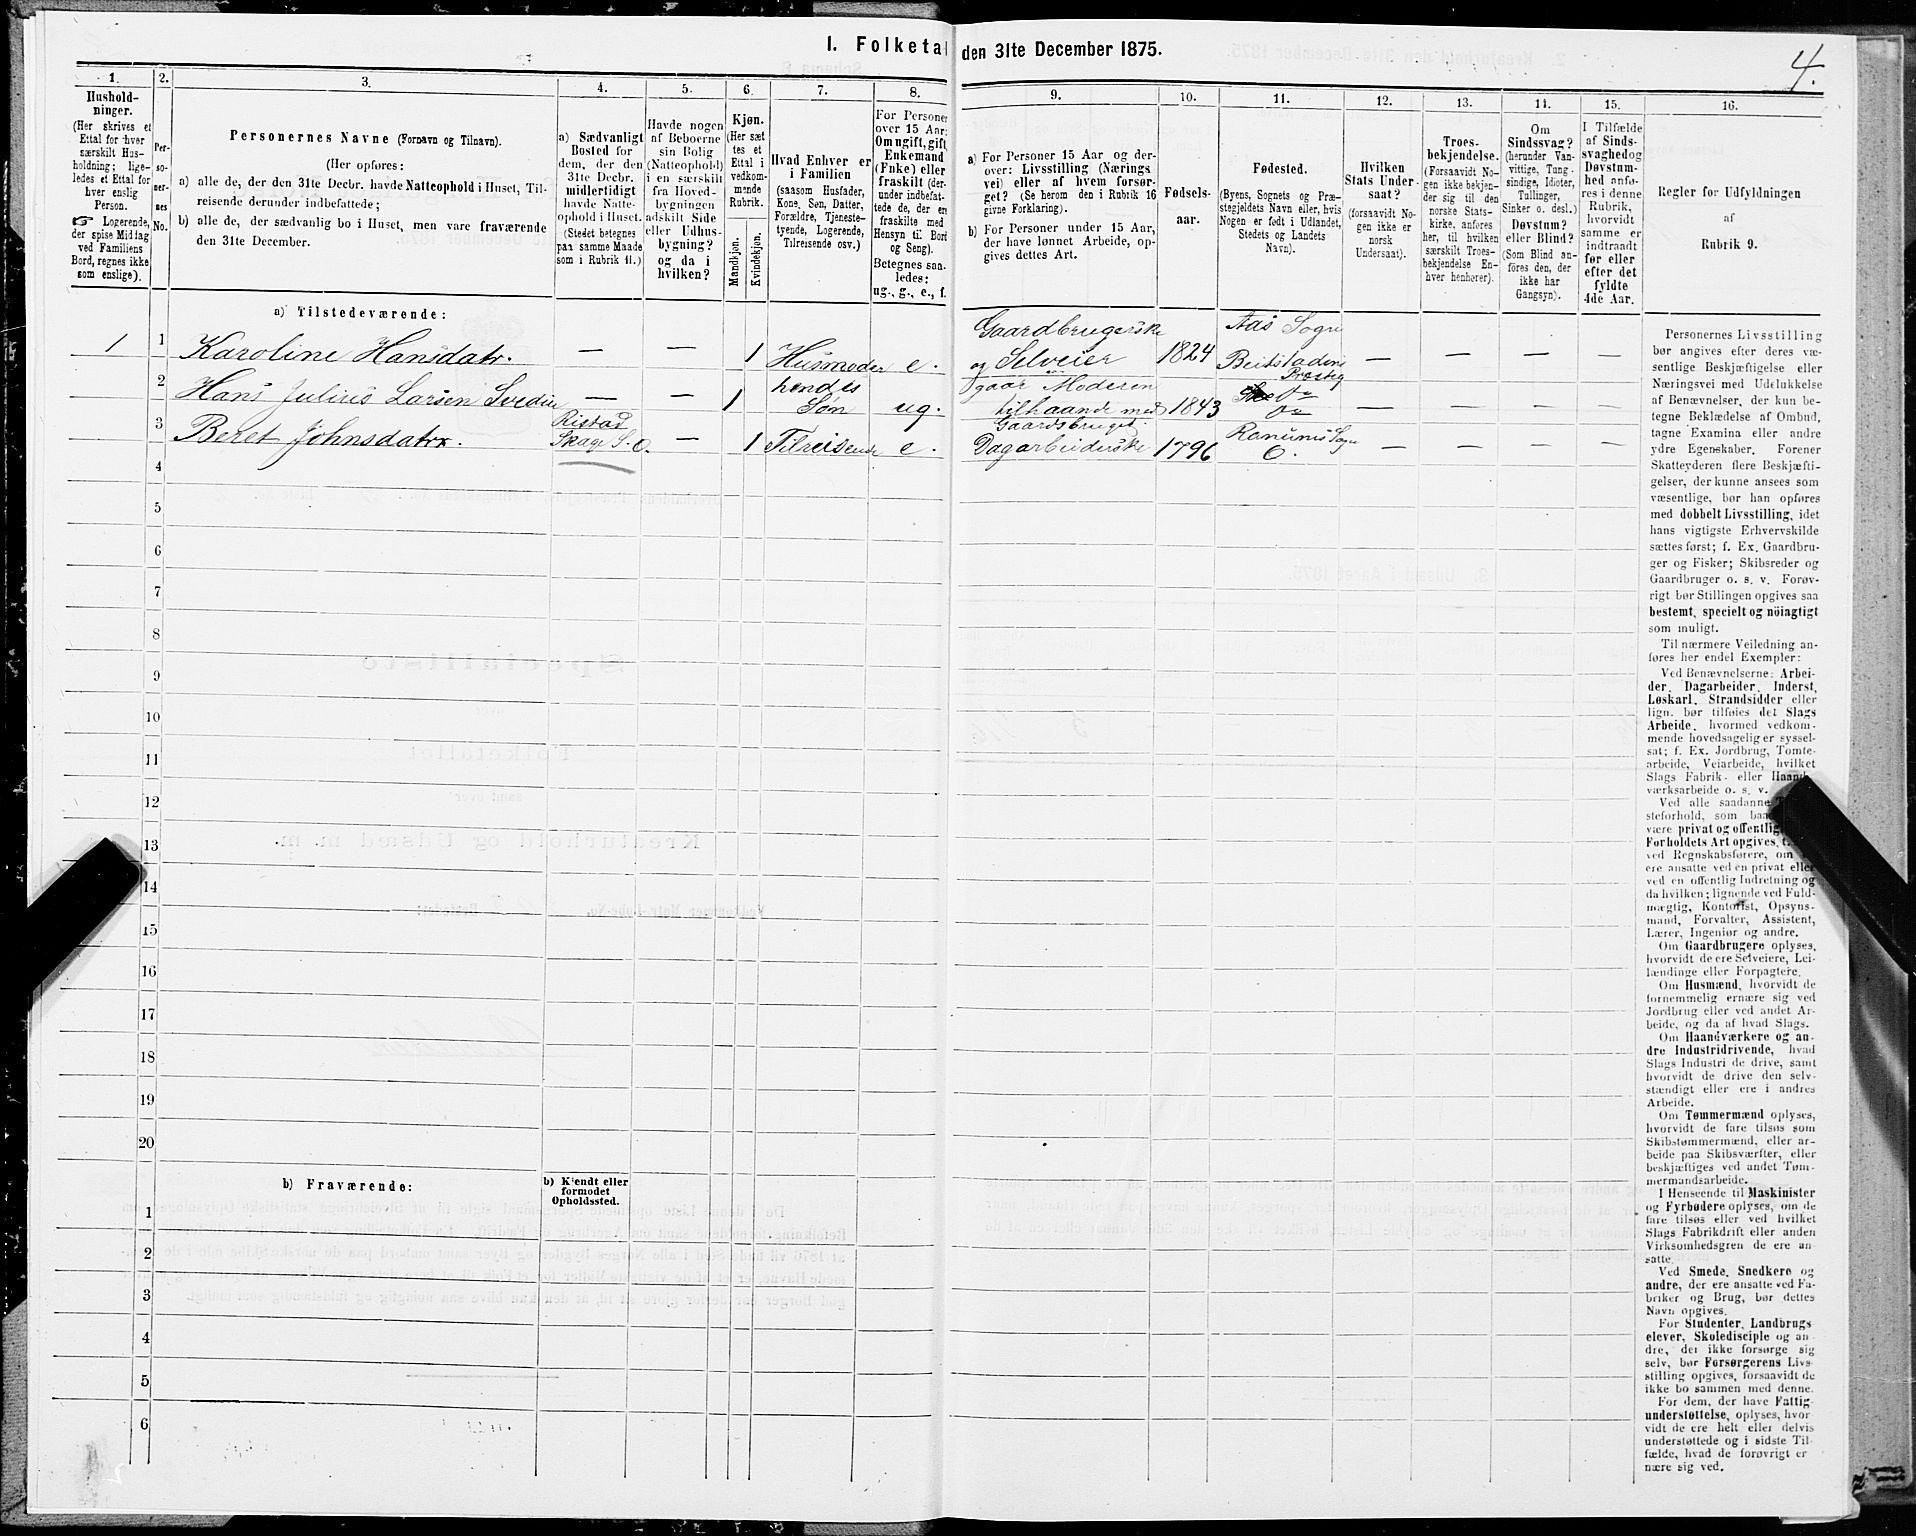 I. Folketal den 31te December 1875.
4.
1. 2. 3. 4. 5. 6. 7. 8. 9. 10. 11. 12. 13. 14. 15. 16.
Hushold-
ninger.
(Her skrives et
Ettal for hver
særskilt Hus-
holdning; lige-
ledes et Ettal for
hver enslig
Person.
☞ Logerende,
der spise Middag
ved Familiens
Bord, regnes ikke
som enslige).
Per-
so-
ner-
nes
No.
Personernes Navne (Fornavn og Tilnavn).
(Her opføres:
a) alle de, der den 31te Decbr. havde Natteophold i Huset, Til-
reisende derunder indbefattede;
b) alle de, der sædvanlig bo i Huset, men vare fraværende
den 31te December.
a) Sædvanligt
Bosted for
dem, der den
31te Decbr.
midlertidigt
havde Natte-
ophold i Huset.
(Stedet betegnes
paa samme Maade
som i Rubrik 11.)
Havde nogen
af Beboerne
sin Bolig
(Natteophold)
i en særskilt
fra Hoved-
bygningen
adskilt Side
eller Udhus-
bygning?
og da i
hvilken?
Kjøn.
(Her sæt-
tes et
Ettal i
vedkom-
mende
Rubrik.
Mandkjøn.
Kvindekjøn.
Hvad Enhver er
i Familien
(saasom Husfader,
Kone, Søn, Datter,
Forældre, Tjeneste-
tyende, Logerende,
Tilreisende osv.)
For Personer
over 15 Aar:
Om ugift, gift,
Enkemand
(Enke) eller
fraskilt (der-
under indbefat-
tede de, der ere
fraskilte med
Hensyn til Bord
og Seng).
Betegnes saa-
ledes:
ug., g., e., f.
a) For Personer 15 Aar og der-
over: Livsstilling (Nærings
vei) eller af hvem forsør-
get? (Se herom den i Rubrik 16
givne Forklaring).
b) For Personer under 15 Aar,
der have lønnet Arbeide, op-
gives dettes Art.
Fødsels-
aar.
Fødested.
(Byens, Sognets og Præ-
stegjeldets Navn eller, hvis
Nogen er født i Udlandet,
Stedets og Landets
Navn).
Hvilken
Stats Under-
saat?
(forsaavidt No-
gen ikke er
norsk
Undersaat).
Troes-
bekjendelse.
(Forsaavidt No-
gen ikke bekjen-
der sig til den
norske Stats-
kirke, anføres
her, til hvilken
særskilt Troes-
bekjendelse En-
hver henhører).
Om
Sindssvag?
(herunder Van-
vittige, Tung-
sindige, Idioter,
Tullinger,
Sinker o. desl.)
Døvstum?
eller Blind?
(Som Blind an-
føres den, der
ikke har
Gangsyn).
I Tilfælde
af Sinds-
svaghed og
Døvstum-
hed anfø-
res i denne
Rubrik,
hvorvidt
samme er
indtraadt
før eller
efter det
fyldte
4de Aar.
Regler for Udfyldningen
af
Rubrik 9.
a) Tilstedeværende:
1 1 Karoline Hansdatr. — — 1 Husmoder e. Gaardbrugerske og Selveier 1824 Aas Sogn Beitstadens Præsteg — — — —
2 Hans Julius Larsen — — 1 hendes Søn ug. gaar Moderen tilhaande med Gaardsbruget. 1843 — — — —
3 Beret Johnsdatr. Ristad Skage S. O. — 1 Tilreisende e. Dagarbeiderske 1796 Ranums Sogn O. — — — —
4
5
6
7
8
9
10
11
12
13
14
15
16
17
18
19
20
b) Fraværende:
b) Kjendt eller
formodet
Opholdssted.
1
2
3
4
5
6
Personernes Livsstilling
bør angives efter deres væ-
sentlige Beskjæftigelse eller
Næringsvei med Udelukkelse
af Benævnelser, der kun be-
tegne Beklædelse af Ombud,
tagne Examina eller andre
ydre Egenskaber. Forener
Skatteyderen flere Beskjæfti-
gelser, der kunne ansees som
væsentlige, bør han opføres
med dobbelt Livsstilling, idet
hans vigtigste Erhvervskilde
sættes først; f. Ex. Gaardbru-
ger og Fisker; Skibsreder og
Gaardbruger o. s. v. Forøv-
rigt bør Stillingen opgives saa
bestemt, specielt og nøiagtigt
som muligt.
Til nærmere Veiledning an-
føres her endel Exempler:
Ved Benævnelserne: Arbei-
der, Dagarbeider, Inderst,
Løskarl, Strandsidder eller
lign. bør tilføies det Slags
Arbeide, hvormed vedkom-
mende hovedsagelig er syssel-
sat; f. Ex. Jordbrug, Tomte-
arbeide, Veiarbeide, hvilket
Slags Fabrik- eller Haand-
værksarbeide o. s. v.
Ved alle saadanne
steforhold, som
være privat og offentlig,
Forholdets Art opgives,
ved Regnskabsførere, om
ere ansatte ved en privat eller
ved en offentlig Indretning og
da hvilken; lignende ved Fuld-
mægtig, Kontorist, Opsyns-
mand, Forvalter, Assistent,
Lærer, Ingeniør og andre.
Om Gaardbrugere oplyses,
hvorvidt de ere Selveiere, Lei-
lændinge eller Forpagtere.
Om Husmænd, hvorvidt de
fornemmelig ernære sig ved
Jordbrug eller ved andet Ar-
beide, og da af hvad Slags.
Om Haandværkere og an-
dre Industridrivende, hvad
Slags Industri de drive, samt
hvorvidt de drive den selv-
stændigt eller ere i andres
Arbeide.
Om Tømmermænd oplyses,
hvorvidt de fare tilsøs som
Skibstømmermænd, eller ar-
beide paa Skibsværfter, eller
beskjæftiges ved andet Tøm-
mermandsarbeide.
I Henseende til Maskinister
og Fyrbødere oplyses, om de
fare tilsøs eller ved hvilket
Slags Fabrikdrift eller anden
Virksomhedsgren de ere an-
satte.
Ved Smede, Snedkere og
andre, der ere ansatte ved Fa-
briker og Brug, bør dettes
Navn opgives.
For Studenter, Landbrugs
elever, Skoledisciple og an-
dre, der ikke forsørge sig
selv, bør Forsørgerens Livs-
stilling opgives, forsaavidt de
ikke bo sammen med denne.
For dem, der have Fattig
understøttelse, oplyses, hvor
vidt de ere helt eller delvis
understøttede og i sidste Til-
fælde, hvad de forøvrigt er
nære sig ved.